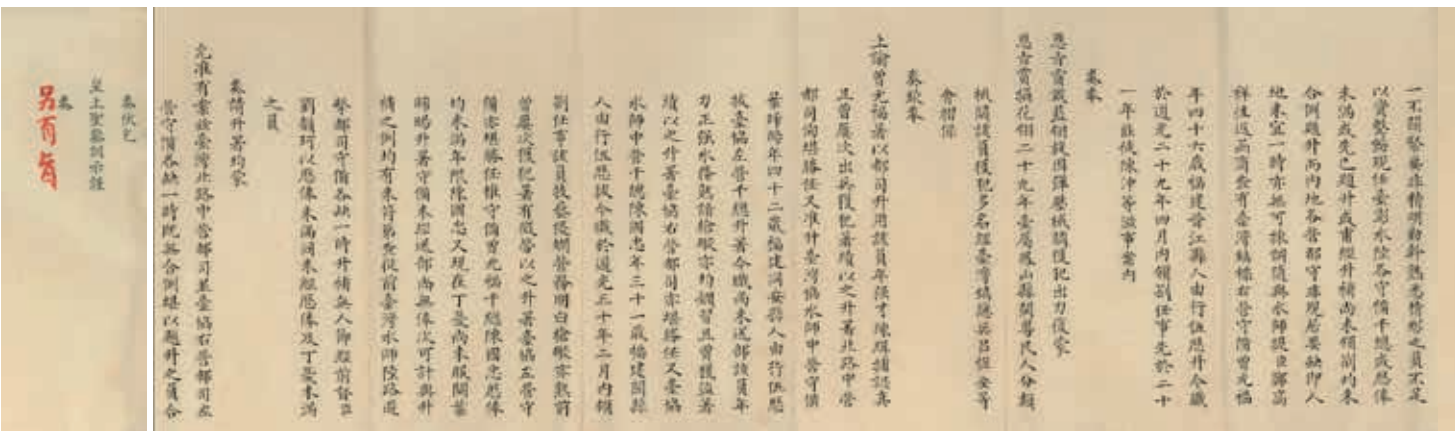 一不閑緊要非精明勤幹熟悉情形之員不足
以資整飭現任臺彭水陸各守備千總或歷俸
未滿或先已題升或甫經升補尚未領劄均未
合例題升而內地各營都守非現居要缺即人
地未宜一時亦無可揀調隨與水師提臣鄭高
祥往返函商查有臺灣鎮標右營守備曾元福
年四十六歲福建晉江縣人由行伍歷升今職
於道光二十九年四月內領劄任事先於二十
一年陳沖等滋事案內
奏奉
恩旨賞戴藍翎因彈壓械鬬獲犯出力復蒙
恩旨賞換花翎二十九年臺屬鳳山縣閩粵民人分類
械鬬該員獲犯多名經臺灣鎮總兵呂恆安等
會摺保
奏欽奉
上諭曾元福著以都司升用該員年強才練緝捕認真
且曾屢次出兵獲犯著績以之升署北路中營
都司洵堪勝任又准升臺灣協水師中營守備
葉得陞年四十二歲福建同安縣人由行伍歷
拔臺協左營千總升署今職尚未送部該員年
力正強水務熟諳槍礮亦均嫻習且曾獲盜著
績以之升署臺協右營都司亦堪勝任又臺協
水師中營千總陳國忠年三十一歲福建閩縣
人由行伍歷拔今職於道光三十年二月內領
劄任事該員技藝優嫻營務明白槍礮亦熟前
曾屢次獲犯著有微勞以之升署臺協左營守
備亦堪勝任惟守備曾元福千總陳國忠歷俸
均未滿年限陳國忠又現在丁憂尚未服闋葉
得陞升署守備未經送部尚無俸次可計與升
補之例均有未符第查從前臺灣水師陸路遊
擊都司守備各缺一時升補無人仰經前督臣
劉韻珂以歷俸未滿同未經歷俸及丁憂未滿
之員
奏請升署均蒙
允准有案茲臺灣北路中營都司並臺協右營都司左
營守備各缺一時既無合例堪以題升之員合
奏伏乞
皇上聖鑒訓示謹
奏
另有旨